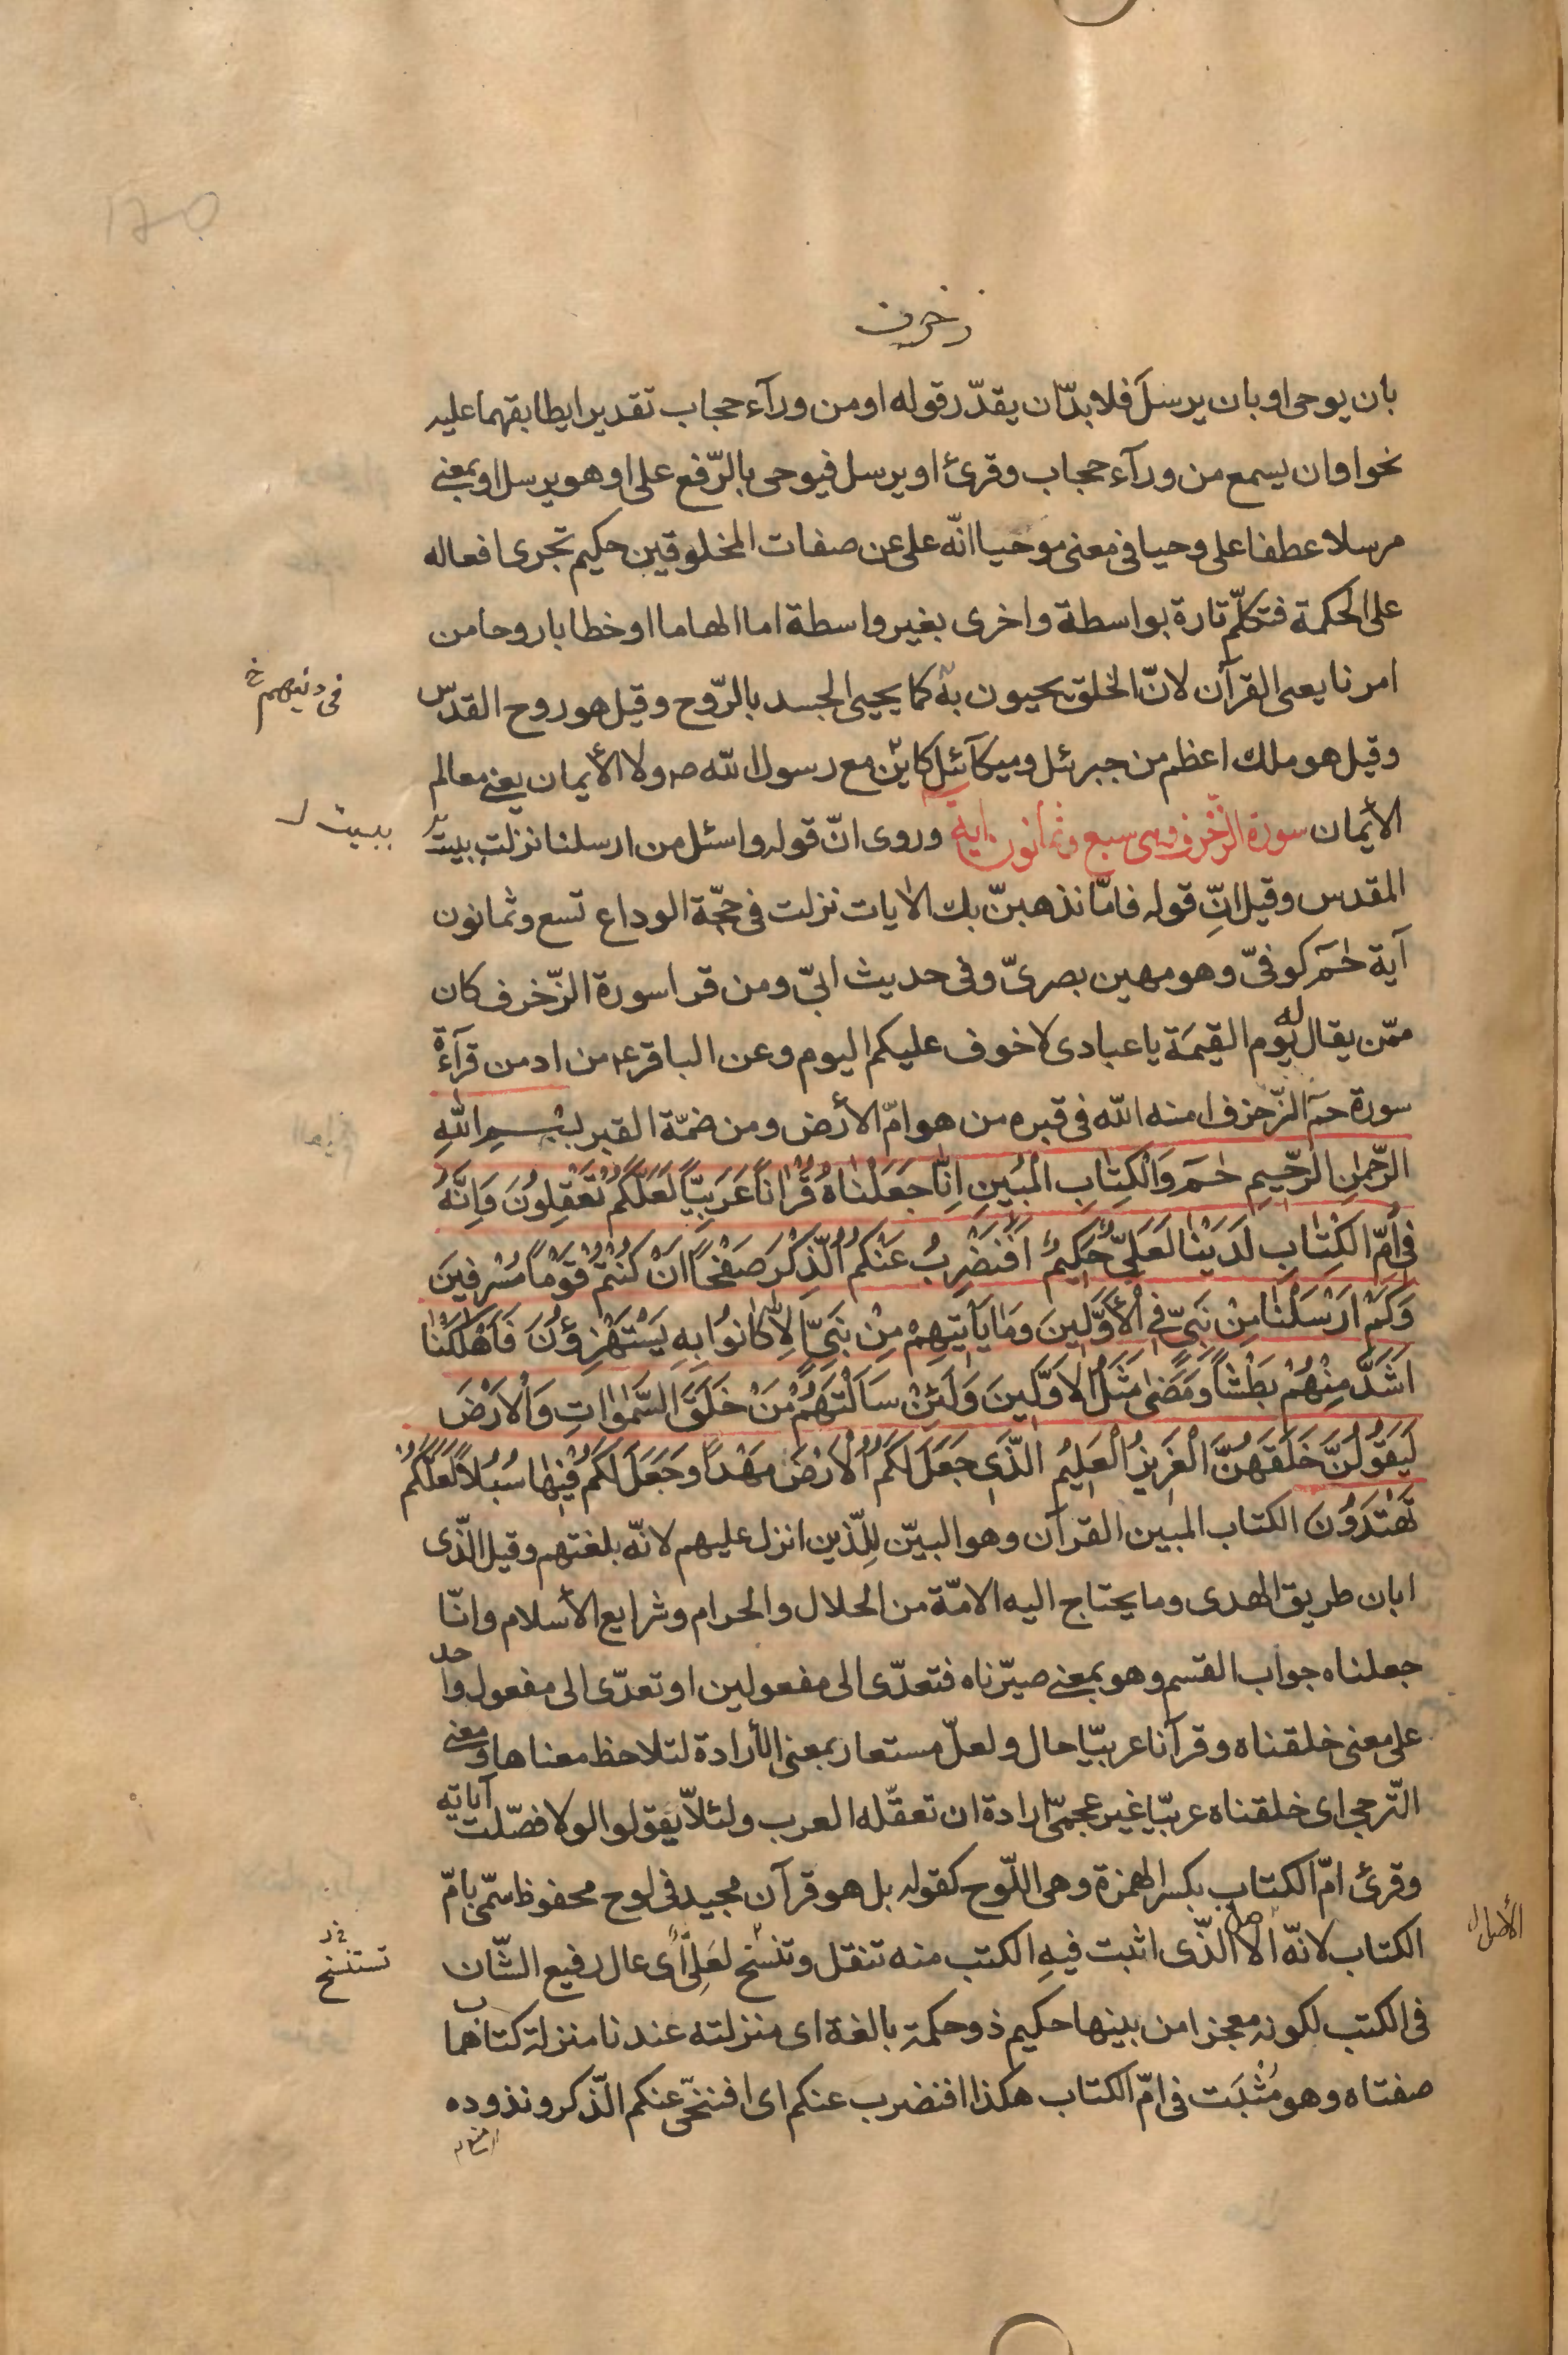 زخرف
بان يوحى او بان يرسل فلا بدّ ان يقدّر قوله او من ورآء حجاب تقديرا يطابقهما عليه
نحو او ان يسمع من ورآء حجاب وقرئ او يرسل فيوحى بالرّفع على او هو يرسل او بمعنى
مرسلا عطفا على وحيا فى معنى موحيا انّه على عن صفات المخلوقين حكيم تجرى افعاله
على الحكمة فتكلّم تارة بواسطة واخرى بغير واسطة اما الهاما او خطابا روحا من
امرنا يعنى القرآن لانّ الخلق يحيون به كما يحيى الجسد بالرّوح وقيل هو روح القدس
فى دينهم خ
وقيل هو ملك اعظم من جبرئل وميكآئل كان مع رسول الله ص ولا الأيمان يعنى معالم
الأيمان سورة الزّخرف وهى سبع وثمانون اية وروى انّ قوله واسئل من ارسلنا نزلت ببيت
ببيت ل
المقدس وقيل انّ قوله فامّا نذهبنّ بك الايات نزلت فى حجّة الوداع تسع وثمانون
آية حٰمٓ كوفىّ وهو مهين بصرىّ وفى حديث ابىّ ومن قرا سورة الزّخرف كان
ممّن يقال له يوم القيمة يا عبادى لا خوف عليكم اليوم وعن الباقر ع من ادمن قرآءة
سورة حمٓ الزّخرف امنه الله فى قبره من هوامّ الأرض ومن ضمّة القبر بِسْمِ اللهِ
الرَّحْمٰنِ الرَّحِيمِ حٰمٓ وَالْكِتٰابِ الْمُبِينِ اِنّٰا جَعَلْنٰاهُ قُرْاٰناً عَرَبِيّاً لَعَلَّكُمْ تَعْقِلُونَ وَاِنَّهُ
فِى اُمِّ الْكِتٰابِ لَدَيْنٰا لَعَلِىٌّ حَكِيمٌ اَفَنَضْرِبُ عَنْكُمُ الذِّكْرَ صَفْحاً اَنْ كُنْتُمْ قَوْماً مُسْرِفِينَ
وَكَمْ اَرْسَلْنٰا مِنْ نَبِىٍّ فِى الْاَوَّلِينَ وَمٰا يَأْتِيهِمْ مِنْ نَبِىٍّ اِلّٰا كٰانُوا بِهِ يَسْتَهْزِؤُنَ فَاَهْلَكْنٰا
اَشَدَّ مِنْهُمْ بَطْشاً وَمَضٰى مَثَلُ الْاَوَّلِينَ وَلَئِنْ سَاَلْتَهُمْ مَنْ خَلَقَ السَّمٰوٰاتِ وَالْاَرْضَ
لَيَقُولُنَّ خَلَقَهُنَّ الْعَزِيزُ الْعَلِيمُ الَّذِى جَعَلَ لَكُمُ الْاَرْضَ مَهْداً وَجَعَلَ لَكُمْ فِيهٰا سُبُلاً لَعَلَّكُمْ
تَهْتَدُونَ الكتاب المبين القرآن وهو البيّن للّذين انزل عليهم لانّه بلغتهم وقيل الّذى
ابان طريق الهدى وما يحتاج اليه الامّة من الحلال والحرام وشرايع الأسلام وانّا
جعلناه جواب القسم وهو بمعنى صيّرناه فتعدّى الى مفعولين او تعدّى الى مفعول واحد
على معنى خلقناه وقرآنا عربيّا حال ولعلّ مستعار بمعنى الأرادة لتلاحظ معناها ومعنى
التّرجى اى خلقناه عربيّا غير عجمىّ ارادة ان تعقّله العرب ولئلاّ يقولوا لولا فصّلت آياته
وقرئ امّ الكتاب بكسر الهمزة وهى اللّوح كقوله بل هو قرآن مجيد فى لوح محفوظ سمّى بامّ
الكتاب لانّه الاصل الّذى اثبت فيه الكتب منه تنقل وتنسّخ لعلىّ اى عال رفيع الشّان
الأصل ل
تستنسخ
فى الكتب لكونه معجزا من بينها حكيم ذو حكمة بالغة اى منزلته عندنا منزلة كتاب هما
صفتاه وهو مُثْبَت فى امّ الكتاب هكذا افنضرب عنكم اى افننحّى عنكم الّذكر ونذوده